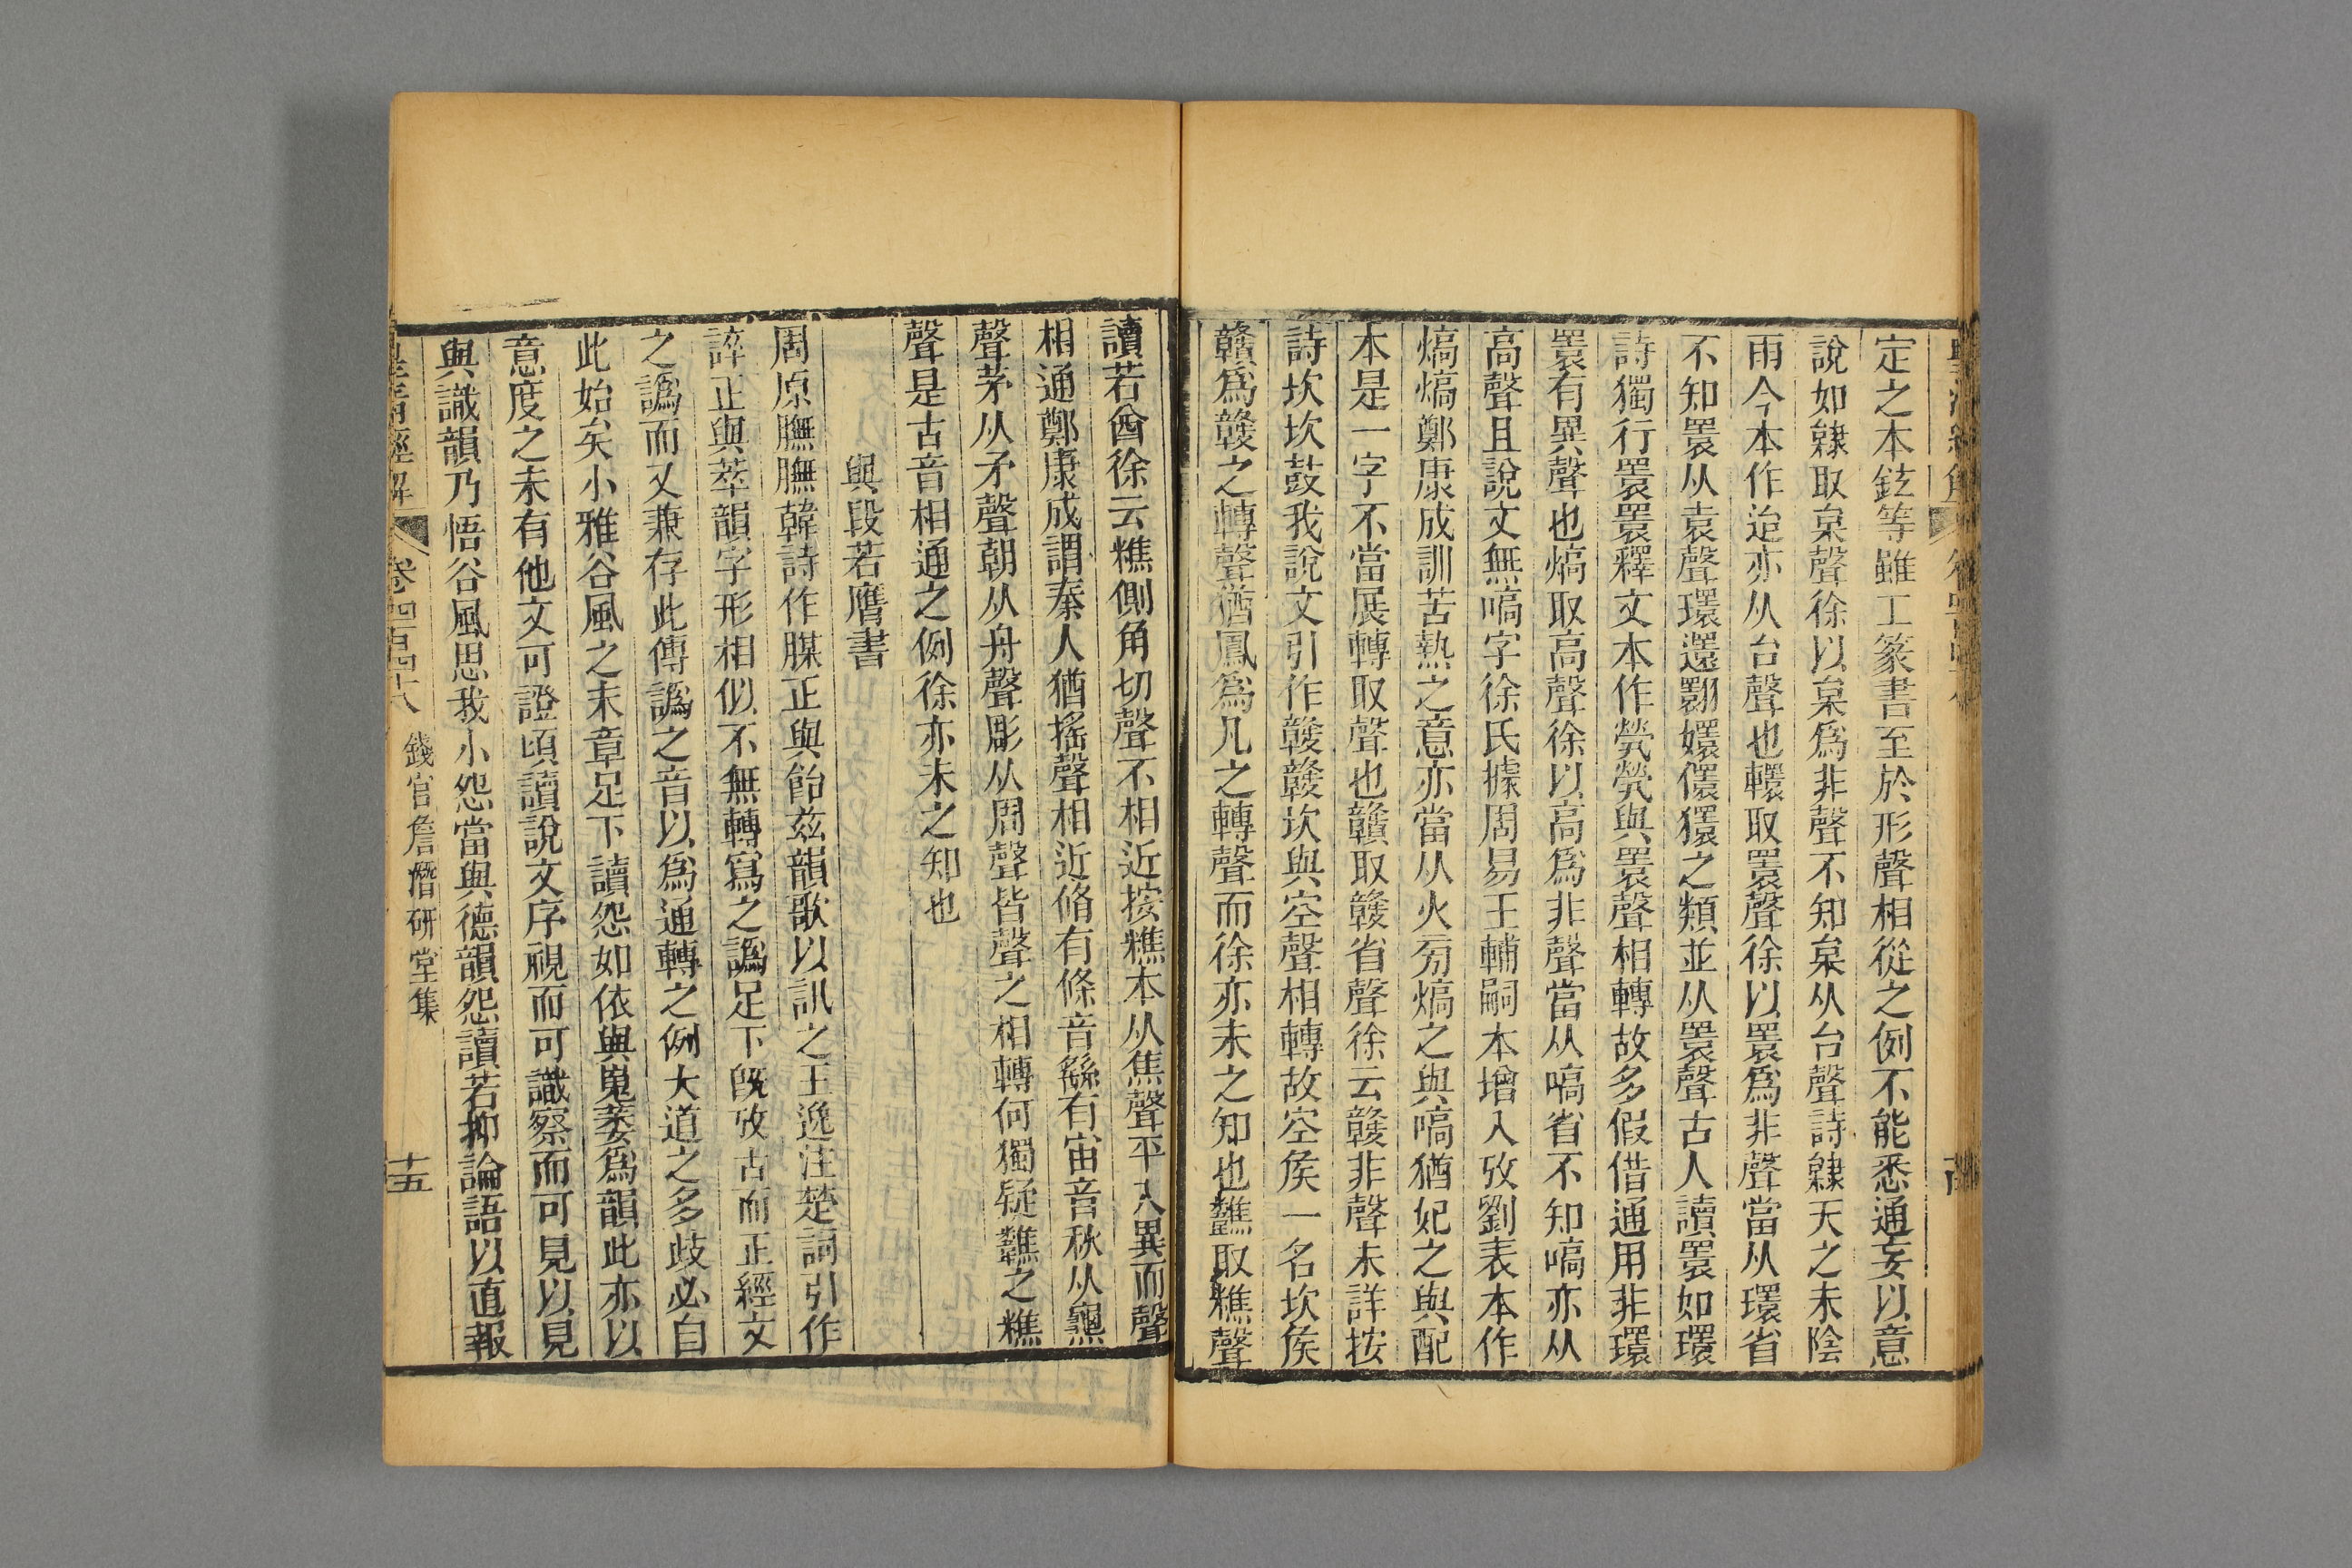 定之本鉉等雖工篆書至於形聲相從之例不能悉通妄以意
說如隸取枲聲徐以枲爲非聲不知枲从台聲詩隸天之未陰
雨今本作迨亦从台聲也轘取睘聲徐以睘爲非聲當从環省
不知睘从袁聲環還翾嬛儇獧之類並从睘聲古人讀睘如環
詩獨行睘睘釋文本作煢煢與睘聲相轉故多假借通用非環
睘有異聲也熇取高聲徐以高爲非聲當从嗃省不知嗃亦从
高聲且說文無嗃字徐氏據周易王輔嗣本增入攷劉表本作
熇熇鄭康成訓苦熱之意亦當从火㫄熇之與嗃猶妃之與配
本是一字不當展轉取聲也贛取竷省聲徐云竷非聲未詳按
詩坎坎鼓我說文引作竷竷坎與空聲相轉故空矦一名坎矦
贛爲竷之轉聲猶鳳爲凡之轉聲而徐亦未之知也䆶取糕聲
讀若酋徐云糕側角切聲不相近按糕本从焦聲平入異而聲
相通鄭康成謂秦人猶搖聲相近脩有條音繇有宙音秋从龝
聲茅从矛聲朝从舟聲彫从周聲皆聲之相轉何獨疑䆶之糕
聲是古音相通之例徐亦未之知也
與段若膺書
周原膴膴韓詩作腜正與飴茲韻歌以訊之王逸注楚詞引作
誶正與萃韻字形相似不無轉寫之譌足下旣攷古而正經文
之譌而又兼存此傳譌之音以爲通轉之例大道之多歧必自
此始矣小雅谷風之末章足下讀怨如依與嵬萎爲韻此亦以
意度之未有他文可證頃讀說文序視而可識察而可見以見
與識韻乃悟谷風思我小怨當與德韻怨讀若抑論語以直報
皇清經解 卷四百四十八 錢宫詹潛研堂集 十五